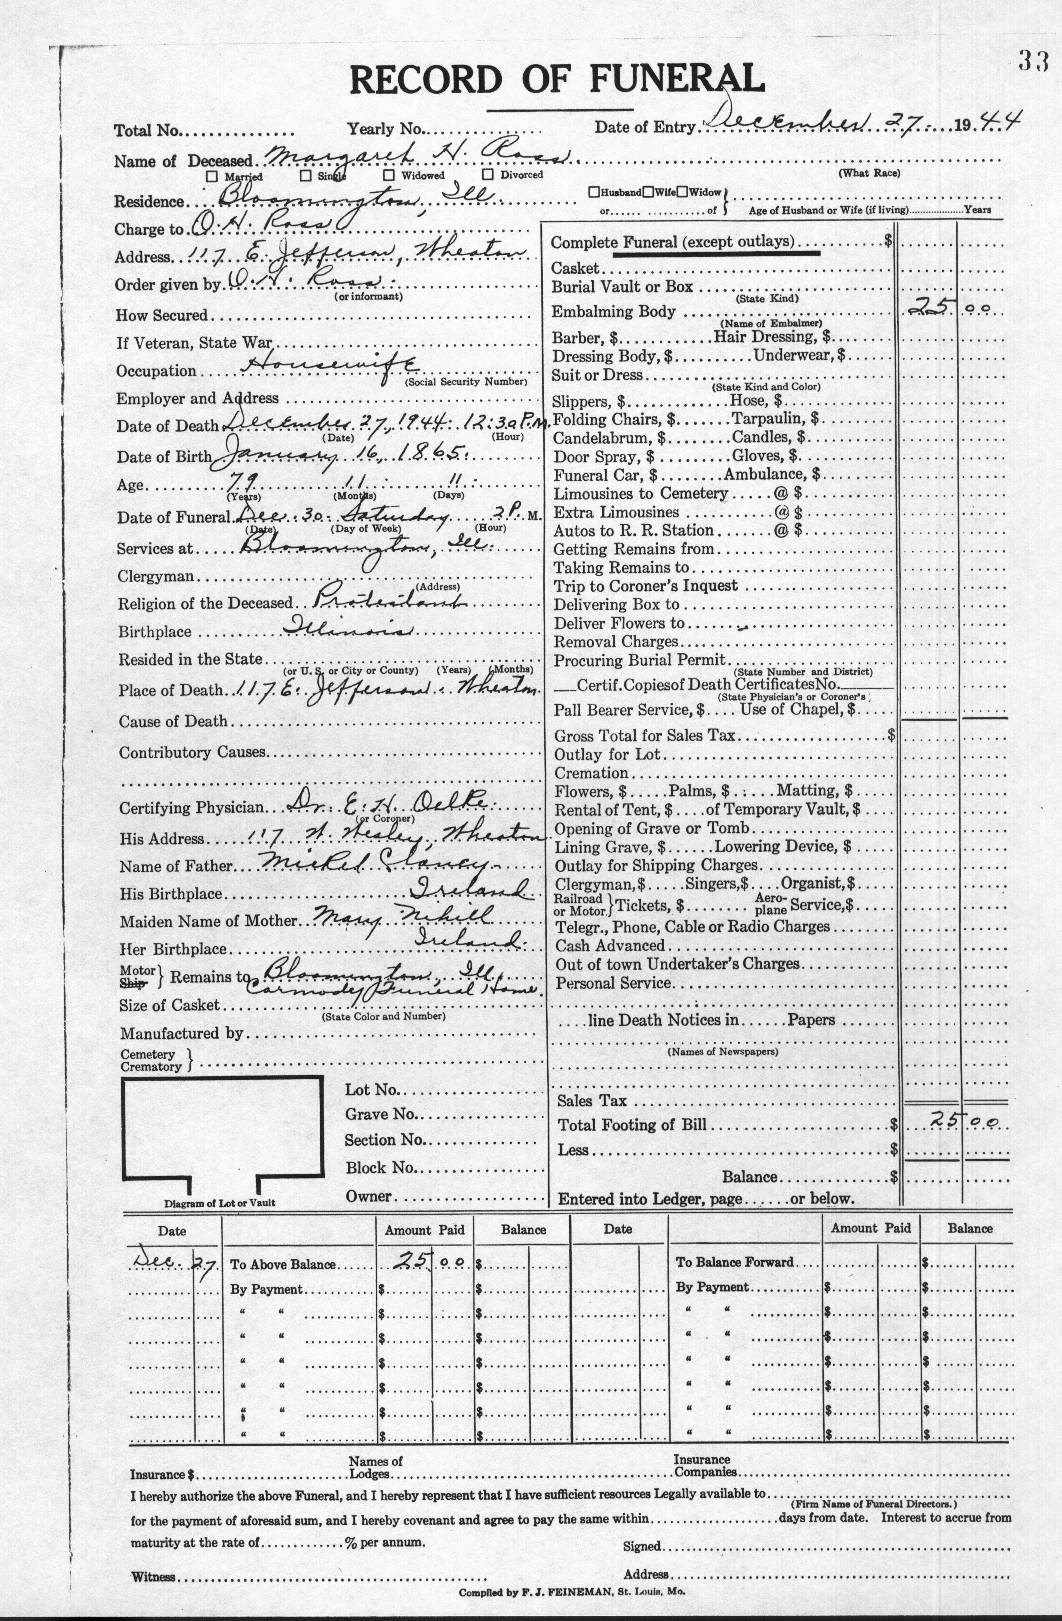 33
RECORD OF FUNERAL
Total No. Yearly No. Date of Entry. December 27 1944
Name of Deceased. Margaret H. Ross
☐ Married ☐ Single ☐ Widowed ☐ Divorced (What Race)
Residence Bloomington, Ill. ☐Husband☐Wife☐Widow }
or of Age of Husband or Wife (if living) Years
Charge to O. H. Ross
Address. 117 E. Jefferson, Wheaton
Order given by O. H. Ross
(or informant)
How Secured
If Veteran, State War
Occupation Housewife
(Social Security Number)
Employer and Address
Date of Death December 27, 1944 12:30 P.M.
(Date) (Hour)
Date of Birth January 16, 1865.
Age 79 11 11
(Years) (Months) (Days)
Date of Funeral Dec 30 Saturday 2 P. M.
(Date) (Day of Week) (Hour)
Services at Bloomington, Ill.
Clergyman
(Address)
Religion of the Deceased Protestant
Birthplace Illinois
Resided in the State
(or U. S. or City or County) (Years) (Months)
Place of Death 117 E. Jefferson Wheaton
Cause of Death
Contributory Causes
Certifying Physician Dr. E. H. Oelke
(or Coroner)
His Address 117 W. Wesley, Wheaton
Name of Father Mickel Clancy
His Birthplace Ireland
Maiden Name of Mother Mary Nihill
Her Birthplace Ireland
Motor
Ship } Remains to Bloomington, Ill.
Carmody Funeral Home
Size of Casket
(State Color and Number)
Manufactured by
Cemetery
Crematory }
Lot No.
Grave No.
Section No.
Block No.
Owner
Diagram of Lot or Vault
Complete Funeral (except outlays) $
Casket
Burial Vault or Box
(State Kind)
Embalming Body 25 00
(Name of Embalmer)
Barber, $ Hair Dressing, $
Dressing Body, $ Underwear, $
Suit or Dress
(State Kind and Color)
Slippers, $ Hose, $
Folding Chairs, $ Tarpaulin, $
Candelabrum, $ Candles, $
Door Spray, $ Gloves, $
Funeral Car, $ Ambulance, $
Limousines to Cemetery @ $
Extra Limousines @ $
Autos to R. R. Station @ $
Getting Remains from
Taking Remains to
Trip to Coroner's Inquest
Delivering Box to
Deliver Flowers to
Removal Charges
Procuring Burial Permit
(State Number and District)
Certif. Copies of Death Certificates No.
(State Physician's or Coroner's)
Pall Bearer Service, $ Use of Chapel, $
Gross Total for Sales Tax $
Outlay for Lot
Cremation
Flowers, $ Palms, $ Matting, $
Rental of Tent, $ of Temporary Vault, $
Opening of Grave or Tomb
Lining Grave, $ Lowering Device, $
Outlay for Shipping Charges
Clergyman, $ Singers, $ Organist, $
Railroad
or Motor } Tickets, $ Aero-
plane Service, $
Telegr., Phone, Cable or Radio Charges
Cash Advanced
Out of town Undertaker's Charges
Personal Service
line Death Notices in Papers
(Names of Newspapers)
Sales Tax
Total Footing of Bill $ 25 00
Less $
Balance $
Entered into Ledger, page or below.
Date Amount Paid Balance Date Amount Paid Balance
Dec. 27 To Above Balance 25 00 $ To Balance Forward $
By Payment $ $ By Payment $ $
“ “ $ $ “ “ $ $
“ “ $ $ “ “ $ $
“ “ $ $ “ “ $ $
“ “ $ $ “ “ $ $
“ “ $ $ “ “ $ $
“ “ $ $ “ “ $ $
Insurance $ Names of
Lodges Insurance
Companies
I hereby authorize the above Funeral, and I hereby represent that I have sufficient resources Legally available to
(Firm Name of Funeral Directors.)
for the payment of aforesaid sum, and I hereby covenant and agree to pay the same within days from date. Interest to accrue from
maturity at the rate of % per annum. Signed
Witness Address
Compiled by F. J. FEINEMAN, St. Louis, Mo.